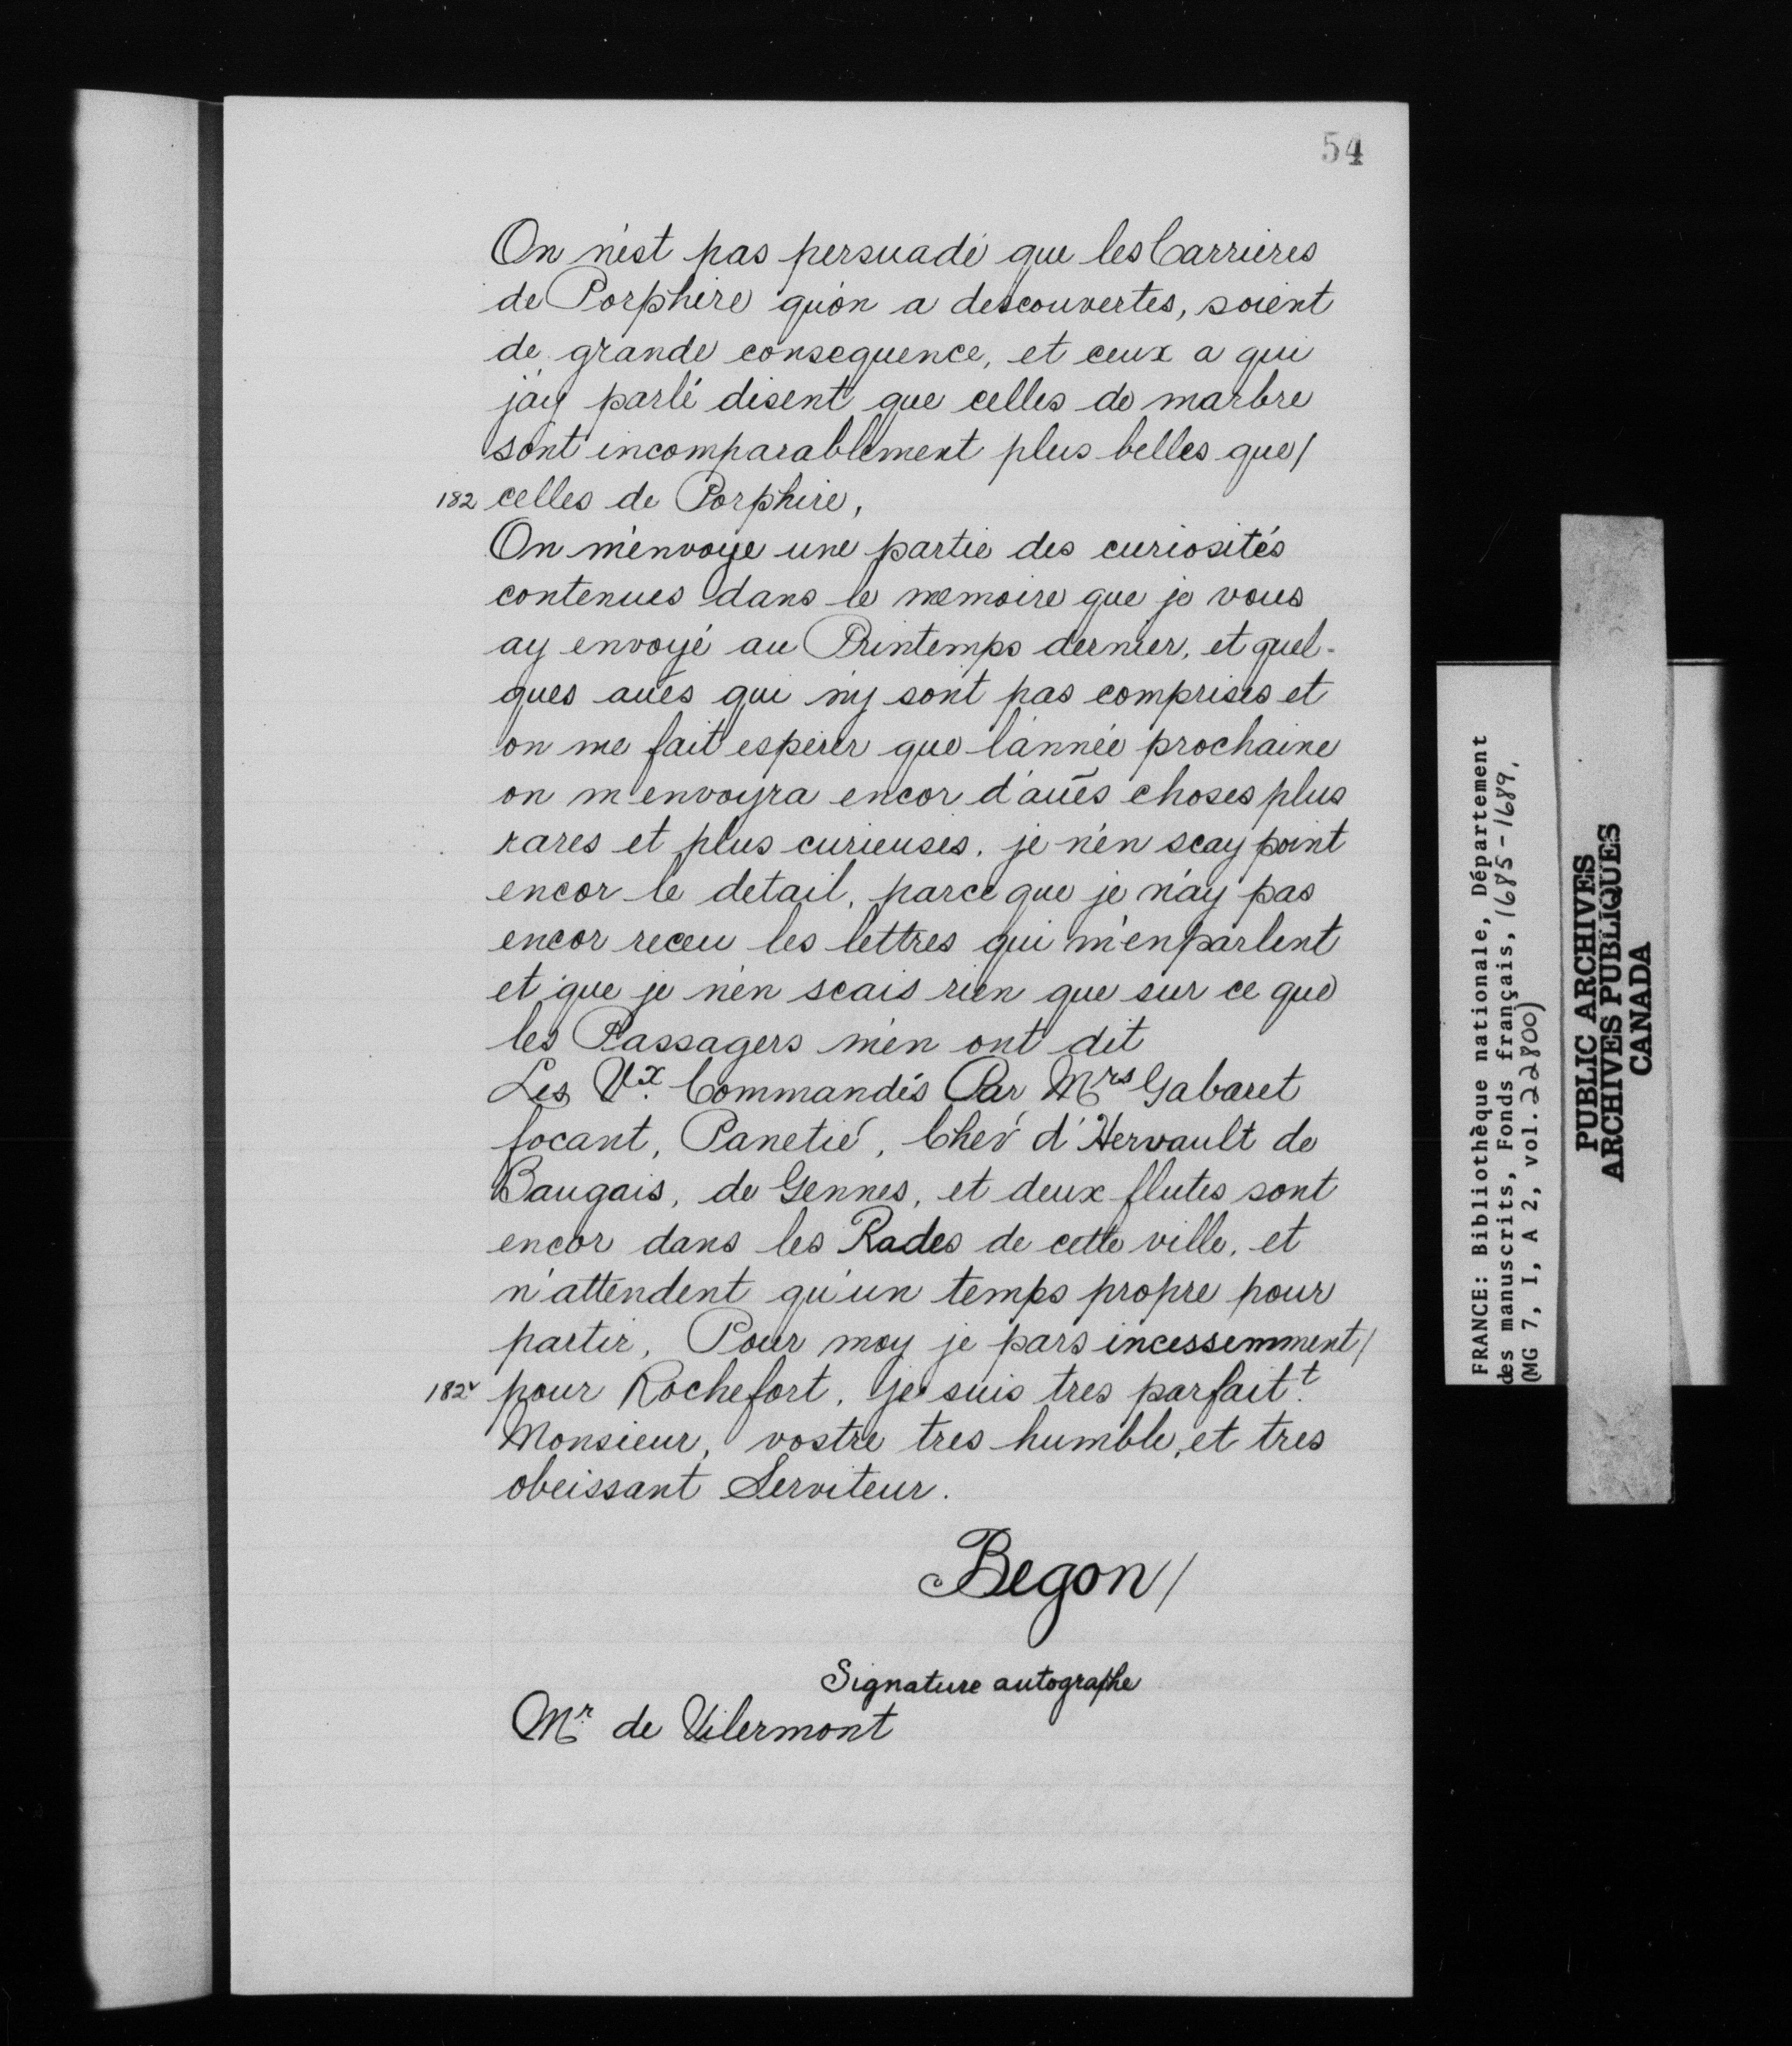 54
On n'est pas persuadé que les Carrieres
de Porphire qu'on a descouvertes, soient
de grande consequence, et ceux a qui
j'ay parlé disent que celles de marbre
sont incomparablement plus belles que/
182 celles de Porphire,
On m'envoye une partie des curiosités
contenues dans le memoire que je vous
ay envoyé au Printemps dernier, et quel-
ques aues qui n'y sont pas comprises et
on me fait esperer que l'année prochaine
on m'envoyra encor d'aūes choses plus
rares et plus curieuses. je n'en scay point
encor le detail, parce que je n'ay pas
encor receu les lettres qui m'en parlent
et que je n'en scais rien que sur ce que
les Passagers m'en ont dit
Les Vx. Commandés Par Mrs Gabaret
focant, Panetié, Chev d'Hervault de
Baugais, de Gennes, et deux flutes sont
encor dans les Rades de cette ville, et
n'attendent qu'un temps propre pour
partir, Pour moy je pars incessemment/
182v pour Rochefort, je suis tres parfaitt.
Monsieur, vostre tres humble, et tres
obeissant Serviteur.
Begon/
Signature autographe
Mr. de Vilermont
FRANCE: Bibliothèque nationale, Département
des manuscrits, Fonds français, 1685-1689.
(MG 7, I, A 2, vol. 22800)
PUBLIC ARCHIVES
ARCHIVES PUBLIQUES
CANADA